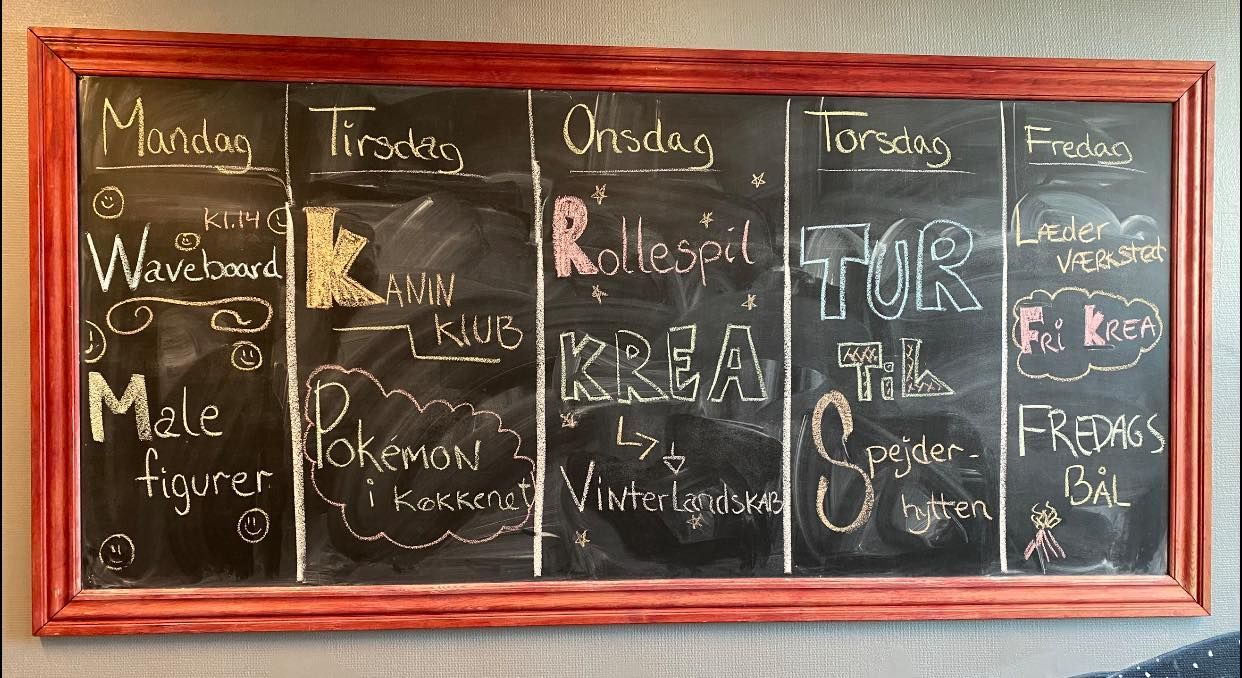 Mandag
Kl.14
Waveboard
Male
figurer
Tirsdag
KANIN
KLUB
POKéMON
i Køkkenet
Onsdag
Rollespil
KREA
VINterLandSKAB
Torsdag
TUR
TiL
Spejder-
hytten
Fredag
LÆDer
VÆRKsted
FRi KREA
FREDAGS
BÅL